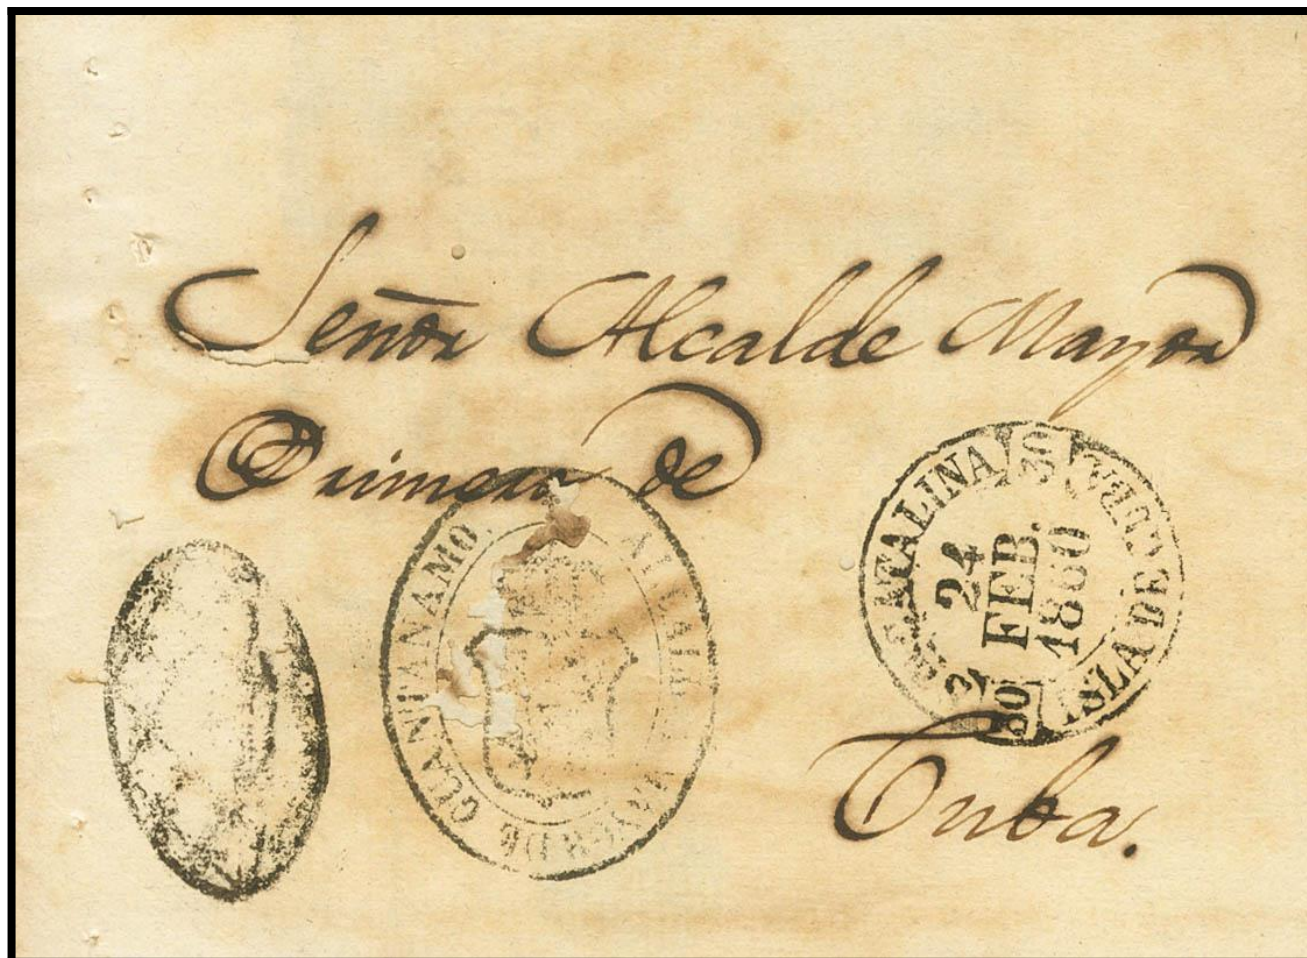 Señor Alcalde Mayor
Primero de
Cuba.
DE GUANTANAMO.
ALCALD
CATALINA
ISLA DE CUBA
24
FEB.
1860